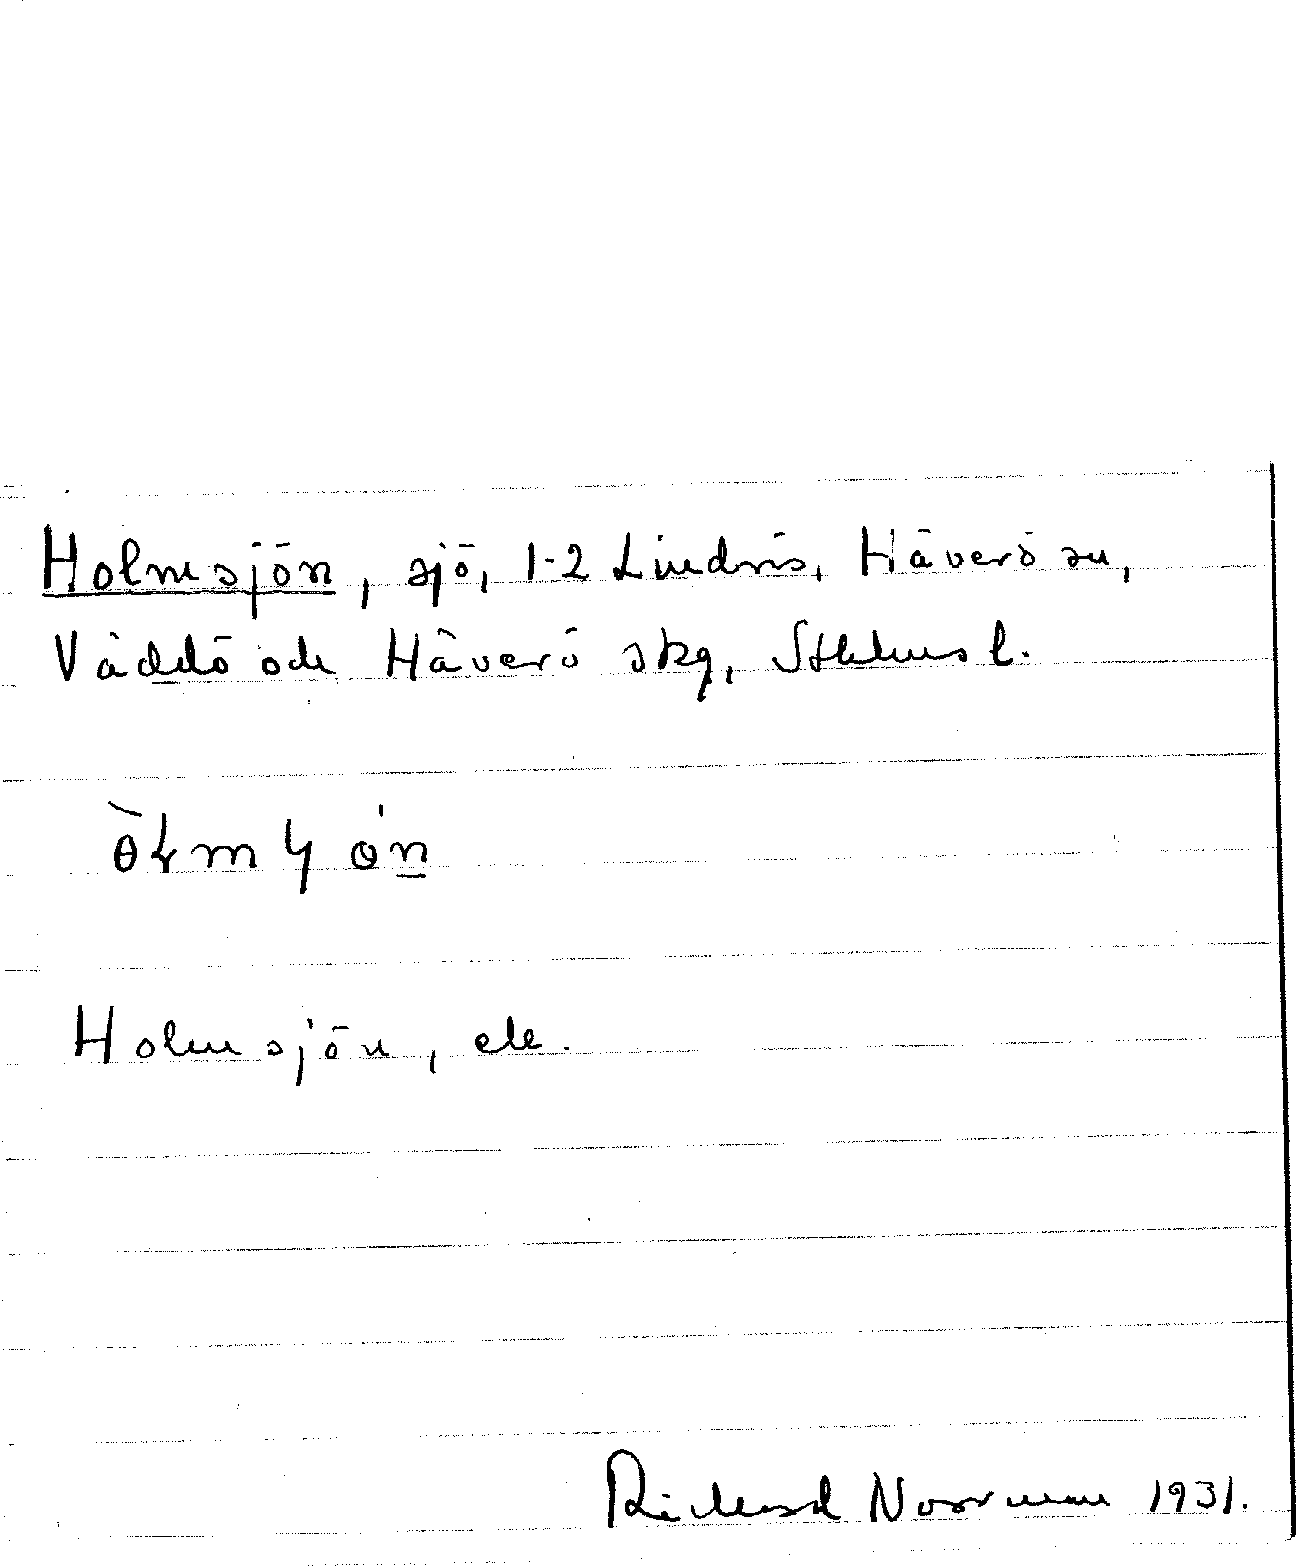 Holmsjön, sjö, 1-2 Lindris, Häverö sn,
Väddö och Häverö skg, Sthlms l.
Holmsjön, ek.
Richard Norrman 1931.